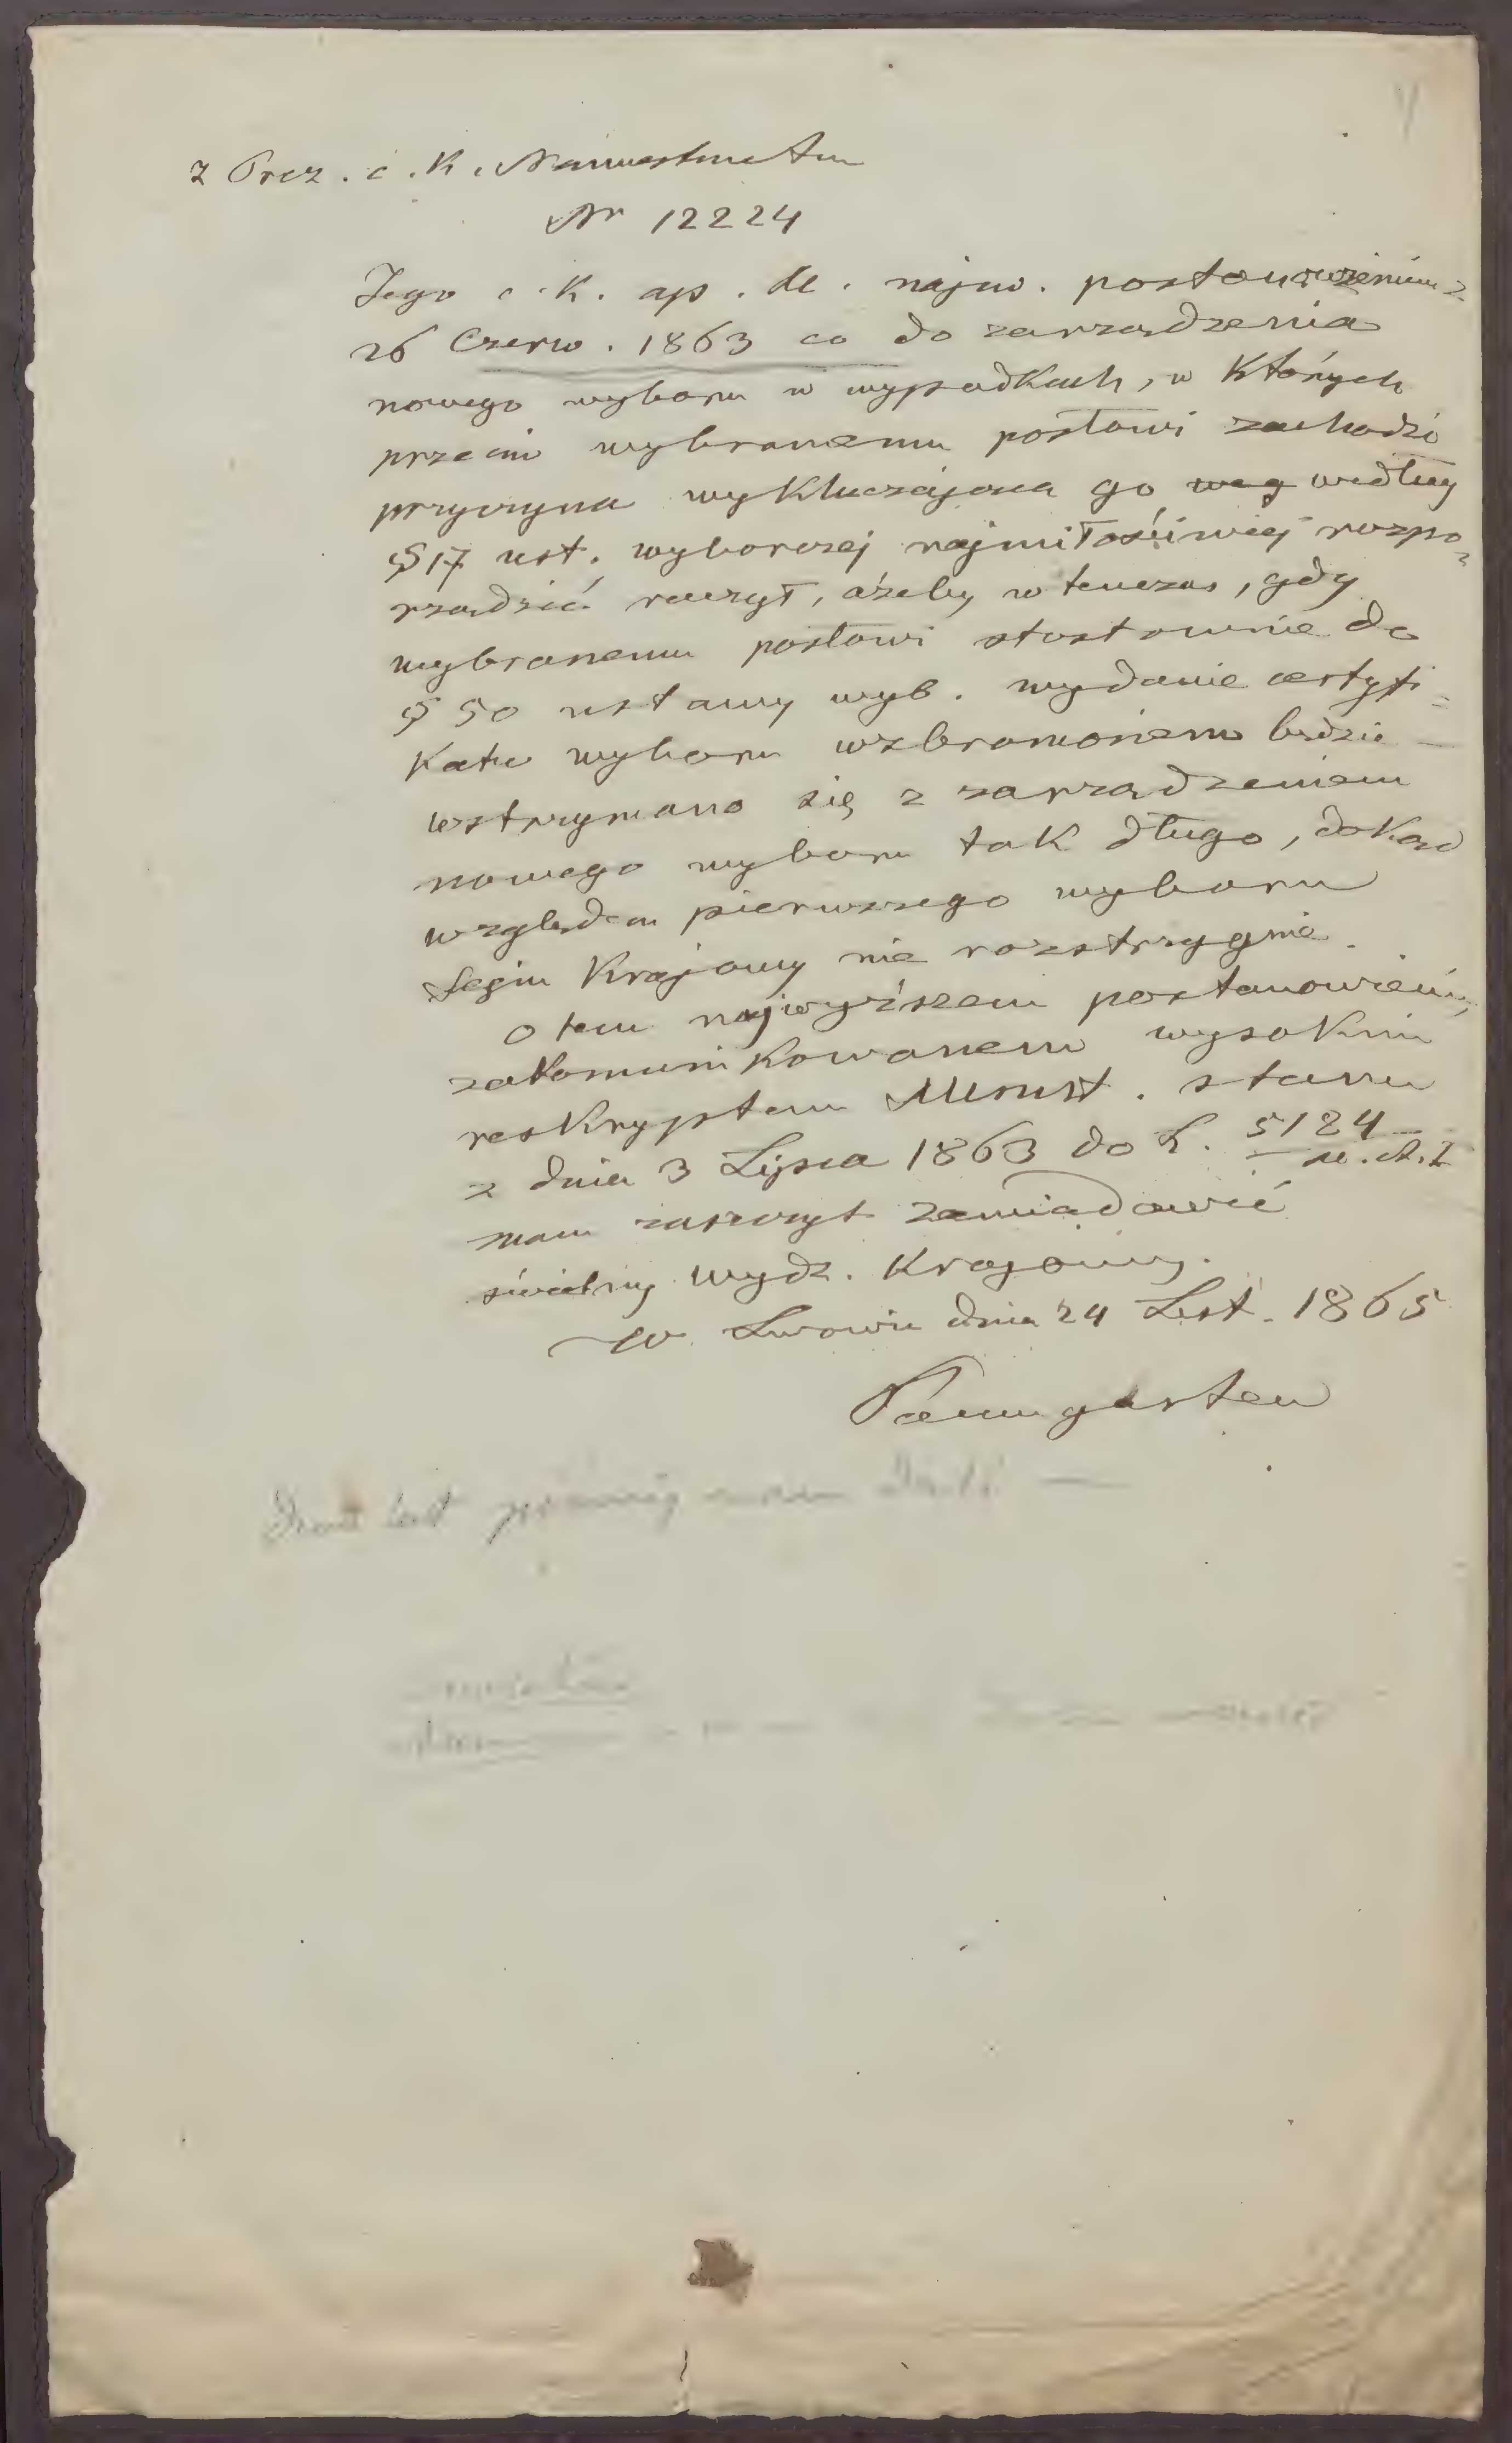 z Prez. c. K. Namiestnictwa
Nr 12224
Jego c. K. ap. M. najw. postanowieniem z
26 Czerw. 1863 co do zarządzenia
nowego wyboru w wypadkach, w Których
przeciw wybranemu posłowi zachodzi
przyczyna wyKluczająca go weg według
§ 17 ust. wyborczej najmiłościwiej rozpo=
rządzić raczył, ażeby w tenczas, gdy
wybranemu posłowi stostownie do
§ 50 ustawy wyb. wydanie certyfi=
Katu wyboru wzbronionem będzie —
wstrzymano się z zarządzeniem
nowego wyboru tak długo, doKąd
względem pierwszego wyboru
Sejm Krajowy nie rozstrzygnie.
O tem najwyższem postanowieniu,
zakomuniKowanem wysoKim
resKryptem Minist. stanu
z dnia 3 Lipca 1863 do L. 5124
mam zaszczyt zawiadowić
świetny Wydz. Krajowy.
W Lwowie dnia 24 List. 1865
Paumgarten